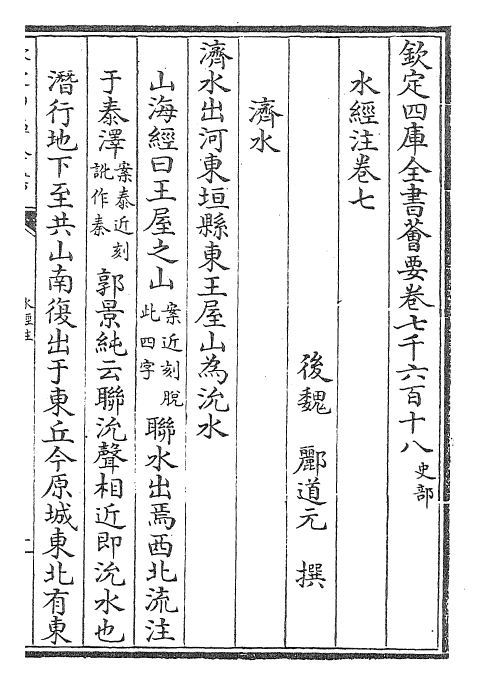 欽定四庫全書薈要卷七千六百十八史部
水經注卷七
後魏 酈道元 撰
濟水
濟水出河東垣縣東王屋山為沇水
山海經曰王屋之山案近刻脫此四字聯水出焉西北流注
于泰澤案泰近刻訛作秦郭景純云聯沇聲相近即沇水也
潛行地下至共山南復出于東丘今原城東北有東
水經注